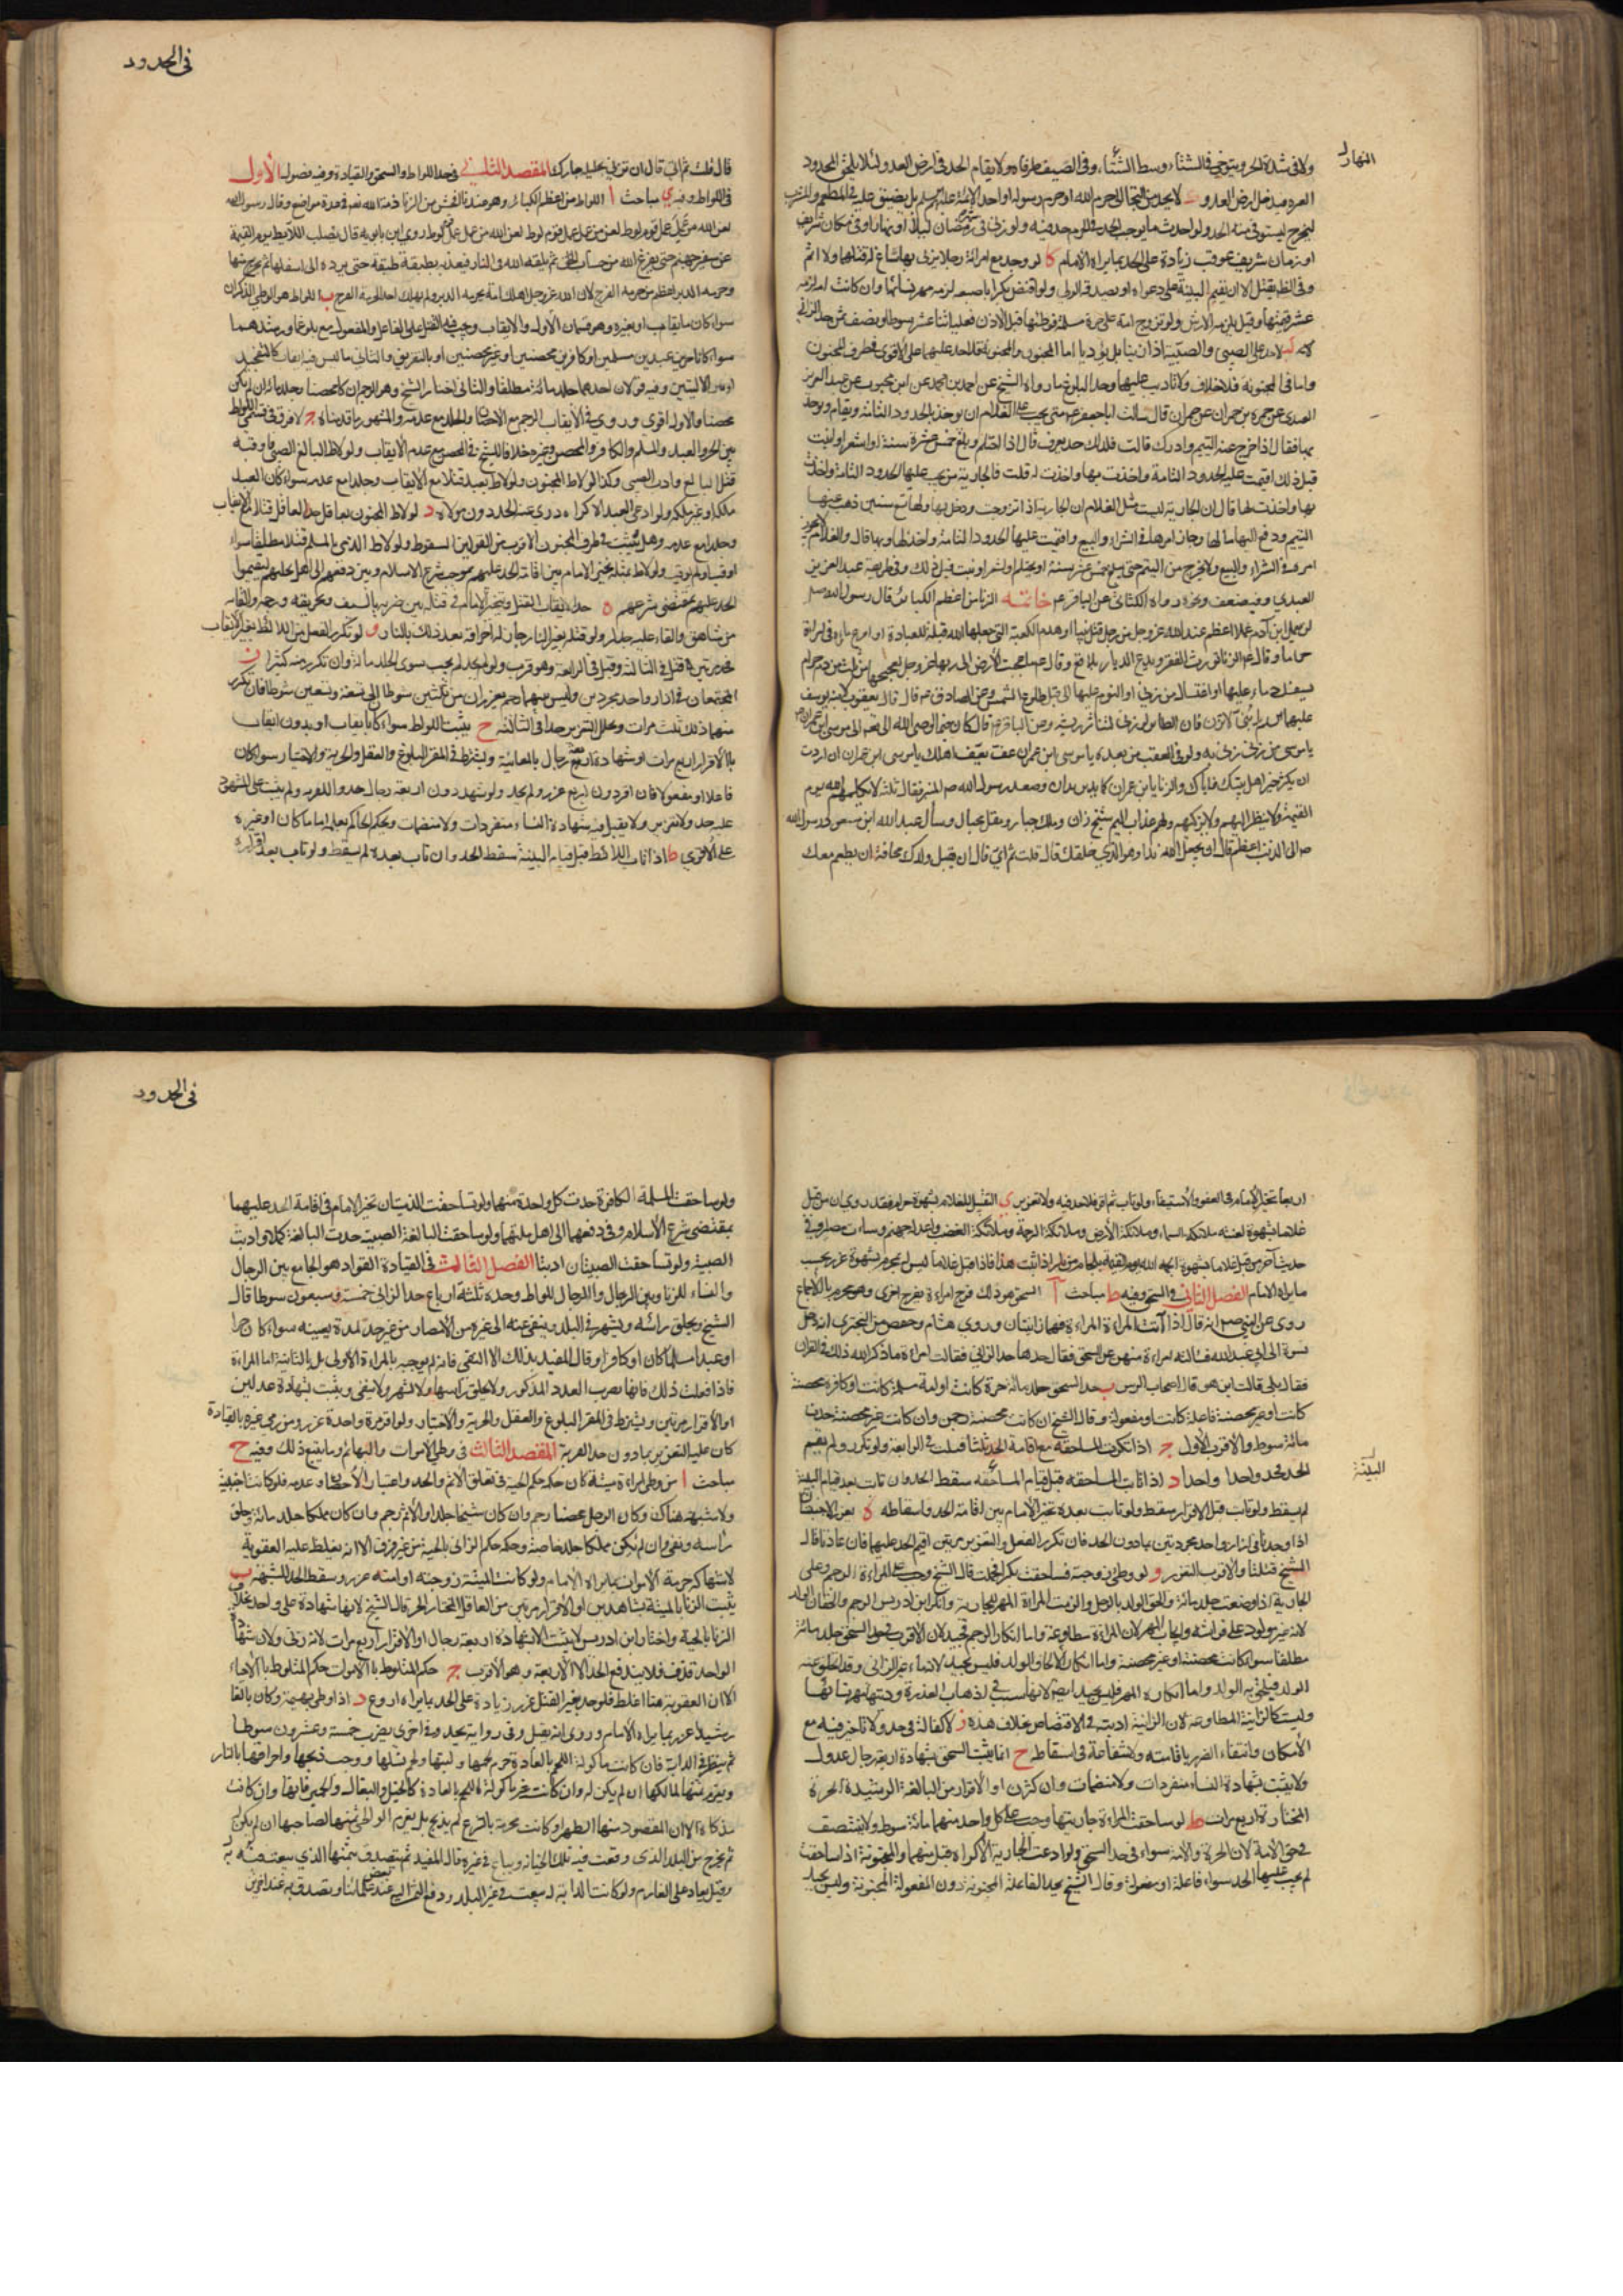 النهار
ولا في شدة الحر ويتوخى في الشتاء وسط الشتاء وفي الصيف طرفاه ولا يقام الحد في ارض العدو لئلا يلحق المحدود
لا يحد من التجأ الى حرم الله او حرم رسوله او احد الائمة عليهم السلم بل يضيق عليه في المطعم والمشرب
ليخرج ليستوفى منه الحد ولو احدث ما يوجب الحد في الحرم حد فيه ولو زنى في شهر رمضان ليلا او نهارا او في مكان شريف
او زمان شريف عوقب زيادة على الحد بما يراه الامام كا لو وجد مع امرأته رجلا يزني بها ساغ له قتلهما ولا اثم
وفي الظاهر يقتل الا ان يقيم البينة على دعواه او يصدقه الولي ولو افتض بكرا باصبعه لزمه مهر نسائها وان كانت امة لزمه
عشر قيمتها وقيل يلزمه الارش ولو تزوج امة على حرة مسلمة فوطئها قبل الاذن فعليه اثنا عشر سوطا ونصف ثمن حد الزاني
لا حد على الصبي والصبية اذا زنيا بل يؤدبا اما المجنون والمجنونة فلا حد عليهما على الاقوى في طرف المجنون
واما في المجنونة فلا خلاف ولا تأديب عليهما وحد البلوغ ما رواه الشيخ عن احمد بن محمد عن ابن محبوب عن عبد العزيز
العبدي عن حمزة بن حمران عن حمران قال سألت ابا جعفر عم متى يجب على الغلام ان يؤخذ بالحدود التامة ويقام ويؤخذ
بها فقال اذا خرج عنه اليتم وادرك قلت فلذلك حد يعرف قال اذا احتلم وبلغ خمس عشرة سنة او اشعر او انبت
قبل ذلك اقيمت عليه الحدود التامة واخذت بها واخذت له قلت فالجارية متى يجب عليها الحدود التامة واخذت
بها واخذت لها قال ان الجارية ليست مثل الغلام ان الجارية اذا تزوجت ودخل بها ولها تسع سنين ذهب عنها
اليتم ودفع اليها مالها وجاز امرها في الشراء والبيع واقيمت عليها الحدود التامة واخذ لها وبها قال والغلام لا يجوز
امره في الشراء والبيع ولا يخرج من اليتم حتى يبلغ خمس عشرة سنة او يحتلم او يشعر او ينبت قبل ذلك وفي طريقه عبد العزيز
العبدي وفيه ضعف ونحوه رواه الكناني عن الباقر عم خاتمة الزنا من اعظم الكبائر قال رسول الله صلعم
لن يعمل ابن آدم عملا اعظم عند الله عز وجل من رجل قتل نبيا او هدم الكعبة التي جعلها الله قبلة لعباده او افرغ ماءه في امرأة
حراما وقال عم الزنا يورث الفقر ويدع الديار بلاقع وقال عم ما عجت الارض الى ربها عز وجل كعجيجها من ثلث من دم حرام
يسفك عليها او اغتسال من زنى او النوم عليها قبل طلوع الشمس وعن الصادق عم قال قال يعقوب لابنه يوسف
يا بني لا تزن فان الطائر لو زنى لتناثر ريشه وعن الباقر عم قال كان فيما اوحى الله الى موسى بن عمران
يا موسى من زنى زني به ولو في العقب من بعده يا موسى ابن عمران عف يعف اهلك يا موسى ابن عمران ان اردت
ان يكثر خير اهل بيتك فاياك والزنا يا ابن عمران كما تدين تدان وصعد رسول الله صم المنبر فقال ثلثة لا يكلمهم الله يوم
القيمة ولا ينظر اليهم ولا يزكيهم ولهم عذاب اليم شيخ زان وملك جبار ومقل مختال وسأل عبد الله ابن مسعود رسول الله
صم اي الذنب اعظم قال ان يجعل لله ندا وهو الذي خلقك قال قلت ثم اي قال ان تقتل ولدك مخافة ان يطعم معك
في الحدود
قال قلت ثم اي قال ان تزني بحليلة جارك المقصد الثاني في حد اللواط والسحق والقيادة وفيه فصول الأول
في اللواط وفيه ي مباحث ا اللواط من اعظم الكبائر وهو عندنا افحش من الزنا ذمه الله تعالى في عدة مواضع وقال رسول الله
لعن الله من عمل عمل قوم لوط لعن الله من عمل عمل قوم لوط روى ابن بابويه قال
وحرمة الدبر اعظم من حرمة الفرج لان الله عز وجل اهلك امة بحرمة الدبر ولم يهلك احدا بحرمة الفرج ب اللواط هو وطي الذكران
سواء كانا حرين او عبدين مسلمين او كافرين محصنين او غير محصنين او بالتفريق والثاني ما ليس فيه ايقاب كالتفخيذ
محصنا والاول اقوى وروي في الايقاب الرجم مع الاحصان والجلد مع عدمه والمشهور ما قدمناه ج لا فرق في
بين الحر والعبد والمسلم والكافر والمحصن وغيره خلافا للشيخ في المحصن مع عدم الايقاب ولو لاط البالغ بالصبي فاوقبه
قتل البالغ وادب الصبي وكذا لو لاط بمجنون ولو لاط بعبده قتلا مع الايقاب وجلدا مع عدمه سواء كان العبد
ملكه او غير ملكه ولو ادعى العبد الاكراه دري عنه الحد دون مولاه د لو لاط المجنون بعاقل حد العاقل قتلا مع الايقاب
وجلدا مع عدمه وهل يثبت في طرف المجنون الاقرب من القولين السقوط ولو لاط الذمي بالمسلم قتل مطلقا سواء
اوقب او لم يوقب ولو لاط بمثله تخير الامام بين اقامة الحد عليهم بموجب شرع الاسلام وبين دفعهم الى اهل ملتهم ليقيموا
الحد عليهم بمقتضى شرعهم ه حد الايقاب القتل ويتخير الامام في قتله بين ضربه بالسيف وتحريقه ورجمه والقائه
من شاهق والقاء عليه جدار ولو قتله بغير النار جاز له احراقه بعد ذلك بالنار و لو تكرر الفعل من اللائط بغير الايقاب
حد مرتين قتل في الثالثة وقيل في الرابعة وهو قريب ولو لم يحد لم يجب سوى الجلد مائة وان تكرر منه كثيرا ز
المجتمعان في ازار واحد مجردين وليس بينهما رحم يعزران من ثلثين سوطا الى تسعة وتسعين سوطا فان تكرر
منهما ذلك ثلث مرات وتخلل التعزير حدا في الثالثة ح يثبت اللواط سواء كان بايقاب او بدون ايقاب
بالاقرار اربع مرات او شهادة اربعة رجال بالمعاينة ويشترط في المقر البلوغ والعقل والحرية والاختيار سواء كان
فاعلا او مفعولا فان اقر دون اربع عزر ولم يحد ولو شهد دون اربعة رجال حدوا للفرية ولم يثبت على المشهود
عليه حد ولا تعزير ولا يقبل فيه شهادة النساء منفردات ولا منضمات ويحكم الحاكم بعلمه اماما كان او غيره
على الاقوى ط اذا تاب اللائط قبل قيام البينة سقط الحد وان تاب بعده لم يسقط ولو تاب بعد اقراره
اربعا تخير الامام في العفو والاستيفاء ولو تاب ثم اقر فلا حد فيه ولا تعزير ي التقبيل للغلام بشهوة حرام فقد روي ان من قبل
غلاما بشهوة لعنته ملائكة السماء وملائكة الارض وملائكة الرحمة وملائكة الغضب واعد له جهنم وساءت مصيرا وفي
حديث آخر من قبل غلاما بشهوة الجمه الله يوم القيمة بلجام من نار اذا ثبت هذا فاذا قبل غلاما ليس له بمحرم بشهوة عزر بحسب
ما يراه الامام الفصل الثاني في السحق وفيه ط مباحث آ السحق هو دلك فرج امرأة بفرج اخرى وهو محرم بالاجماع
روي عن النبي صم انه قال اذا اتت المراة المراة فهما زانيتان وروي هشام وحفص بن البختري انه دخل
نسوة الى ابي عبد الله فسألته امرأة منهن عن السحق فقال حدها حد الزاني فقالت امرأة ما ذكر الله ذلك في القرآن
فقال بلى قالت اين هو قال اصحاب الرس ب حد السحق جلد مائة حرة كانت او امة مسلمة كانت او كافرة محصنة
كانت او غير محصنة فاعلة كانت او مفعولة وقال الشيخ ان كانت محصنة رجمت وان كانت غير محصنة حدت
مائة سوط والاقرب الأول ج اذا تكررت المساحقة مع اقامة الحد ثلثا قتلت في الرابعة ولو تكرر ولم يقم
الحد فحد واحدا واحدا د اذا تابت المساحقة قبل قيام البينة سقط الحد وان تابت بعد قيام البينة
البينة
لم يسقط ولو تابت قبل الاقرار سقط ولو تابت بعده تخير الامام بين اقامة الحد واسقاطه ه يعزر الاجنبيتان
اذا وجدتا في ازار واحد مجردتين بما دون الحد فان تكرر الفعل والتعزير مرتين اقيم الحد عليهما فان عادتا قال
الشيخ قتلتا والاقرب التعزير و لو وطئ زوجته فساحقت بكرا فحملت قال الشيخ وجب على المرأة الرجم وعلى
الجارية اذا وضعت جلد مائة والحق الولد بالرجل والزمت المراة المهر للجارية وانكر ابن ادريس الرجم والحاق الولد
لانه غير مولود على فراشه وايجاب المهر لان المرأة مطاوعة واما انكار الرجم فجيد لان الاقرب في حد السحق جلد مائة
مطلقا سواء كانت محصنة او غير محصنة واما انكار الالحاق بالولد فليس بجيد لانه ماء غير الزاني وقد انخلق عنه
الولد فيلحق به الولد واما انكاره المهر فليس بجيد ايضا لانها سبب في اذهاب العذرة وديتها مهر نسائها
وليست كالزانية المطاوعة لان الزانية اذنت في الافتضاض بخلاف هذه ز لا كفالة في حد ولا تاخير فيه مع
الامكان وانتفاء الضرر باقامته ولا شفاعة في اسقاطه ح انما يثبت السحق بشهادة اربعة رجال عدول
ولا يثبت بشهادة النساء منفردات ولا منضمات وان كثرن او الاقرار من البالغة الرشيدة الحرة
المختارة اربع مرات ط لو ساحقت المراة جاريتها وجب على كل واحدة منهما مائة سوط ولا ينتصف
في حق الامة لان الحرة والامة سواء في حد السحق ولو ادعت الجارية الاكراه قبل منها والمجنونة اذا ساحقت
لم يجب عليها الحد سواء فاعلة او مفعولة وقال الشيخ يحد الفاعلة المجنونة دون المفعولة المجنونة وليس بجيد
في الحدود
ولو ساحقت المسلمة الكافرة حدت كل واحدة منهما ولو تساحقت الذميتان تخير الامام في اقامة الحد عليهما
بمقتضى شرع الاسلام وفي دفعهما الى اهل ملتهما ولو ساحقت البالغة الصبية حدت البالغة كملا وادبت
الصبية ولو تساحقت الصبيتان ادبتا الفصل الثالث في القيادة القواد هو الجامع بين الرجال
والنساء للزنا وبين الرجال والرجال للواط وحده ثلثة ارباع حد الزاني خمسة وسبعون سوطا قال
الشيخ ويحلق رأسه ويشهر في البلد وينفى عنه الى غيره من الامصار من غير حد لمدة نفيه سواء كان حرا
او عبدا مسلما كان او كافرا وقال المفيد بذلك الا النفي فانه لم يوجبه بالمرة الاولى بل بالثانية اما المراة
فاذا فعلت ذلك فانها تضرب العدد المذكور ولا يحلق رأسها ولا تشهر ولا تنفى ويثبت بشهادة عدلين
او الاقرار مرتين ويشترط في المقر البلوغ والعقل والحرية والاختيار ولو اقر مرة واحدة عزر ومن رمى غيره بالقيادة
كان عليه التعزير بما دون حد الفرية المقصد الثالث في وطي الاموات والبهائم وما يتبع ذلك وفيه ح
مباحث ا من وطئ امراة ميتة كان حكمه حكم الحية في تعلق الاثم والحد واعتبار الاحصان وعدمه فلو كانت اجنبية
ولا شبهة هناك وكان الرجل محصنا رجم وان كان شيخا جلد اولا ثم رجم وان كان مملكا جلد مائة وحلق
رأسه ونفي وان لم يكن مملكا جلد خاصة وحكمه حكم الزاني بالحية من غير فرق الا انه يغلظ عليه العقوبة
لانتهاكه حرمة الاموات بما يراه الامام ولو كانت الميتة زوجته او امته عزر وسقط الحد للشبهة ب
يثبت الزنا بالميتة بشاهدين او الاقرار مرتين من العاقل المختار الحر قال الشيخ لانها شهادة على واحد بخلاف
الزنا بالحية واختار ابن ادريس لا يثبت الا بشهادة اربعة رجال او الاقرار اربع مرات لانه زنى ولان شهادة
الواحد قذف فلا يندفع الحد الا بالاربعة وهو الأقرب ج حكم المتلوط بالاموات حكم المتلوط بالاحياء
الا ان العقوبة هنا اغلظ فلو حد بغير القتل عزر زيادة على الحد بما يراه اردع د اذا وطئ بهيمة وكان بالغا
رشيدا عزر بما يراه الامام وروي انه يقتل وفي رواية يحد وفي اخرى يضرب خمسة وعشرون سوطا
ثم ينظر في الدابة فان كانت مأكولة اللحم بالعادة حرم لحمها ولبنها ولحم نسلها ووجب ذبحها واحراقها بالنار
ويغرم ثمنها لمالكها ان لم يكن له وان كانت غير مأكولة اللحم بالعادة كالخيل والبغال والحمير فانها وان كانت
مذكاة الا ان المقصود منها الظهر وكانت محرمة بالشرع لم يذبح بل يغرم الواطي ثمنها لصاحبها ان لم يكن له
ثم يخرج من البلد الذي وقعت فيه تلك الجناية ويباع في غيره قال المفيد ثم يتصدق بثمنها الذي بيعت به
وقيل يعاد على الغارم ولو كانت الدابة له بيعت في غير البلد ودفع الثمن اليه عند بعض علمائنا ويتصدق به عند آخرين